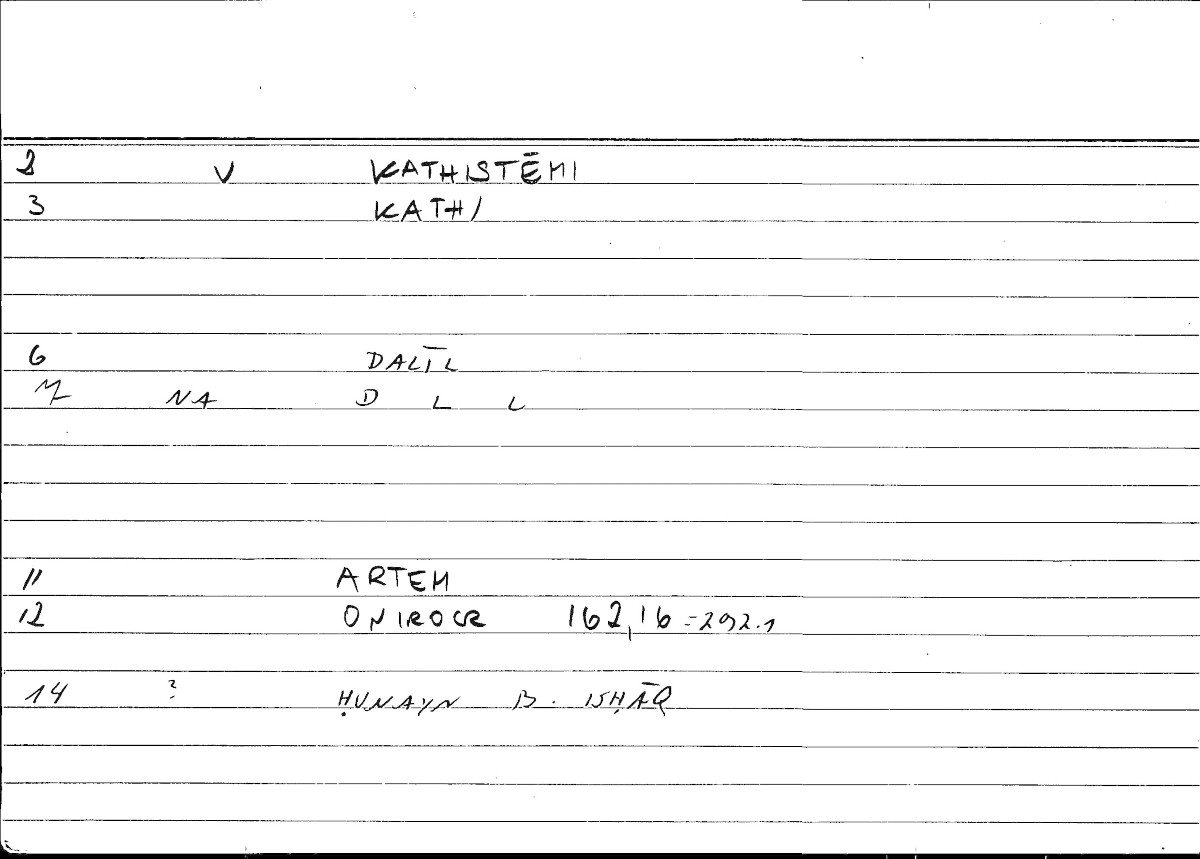 2 V KATHISTĒMI
3 KATHI
6 DALĪL
7 NA D L L
11 ARTEM
12 ONIROCR 162,16 = 292.1
14 ? ḤUNAYN B. ISḤĀQ